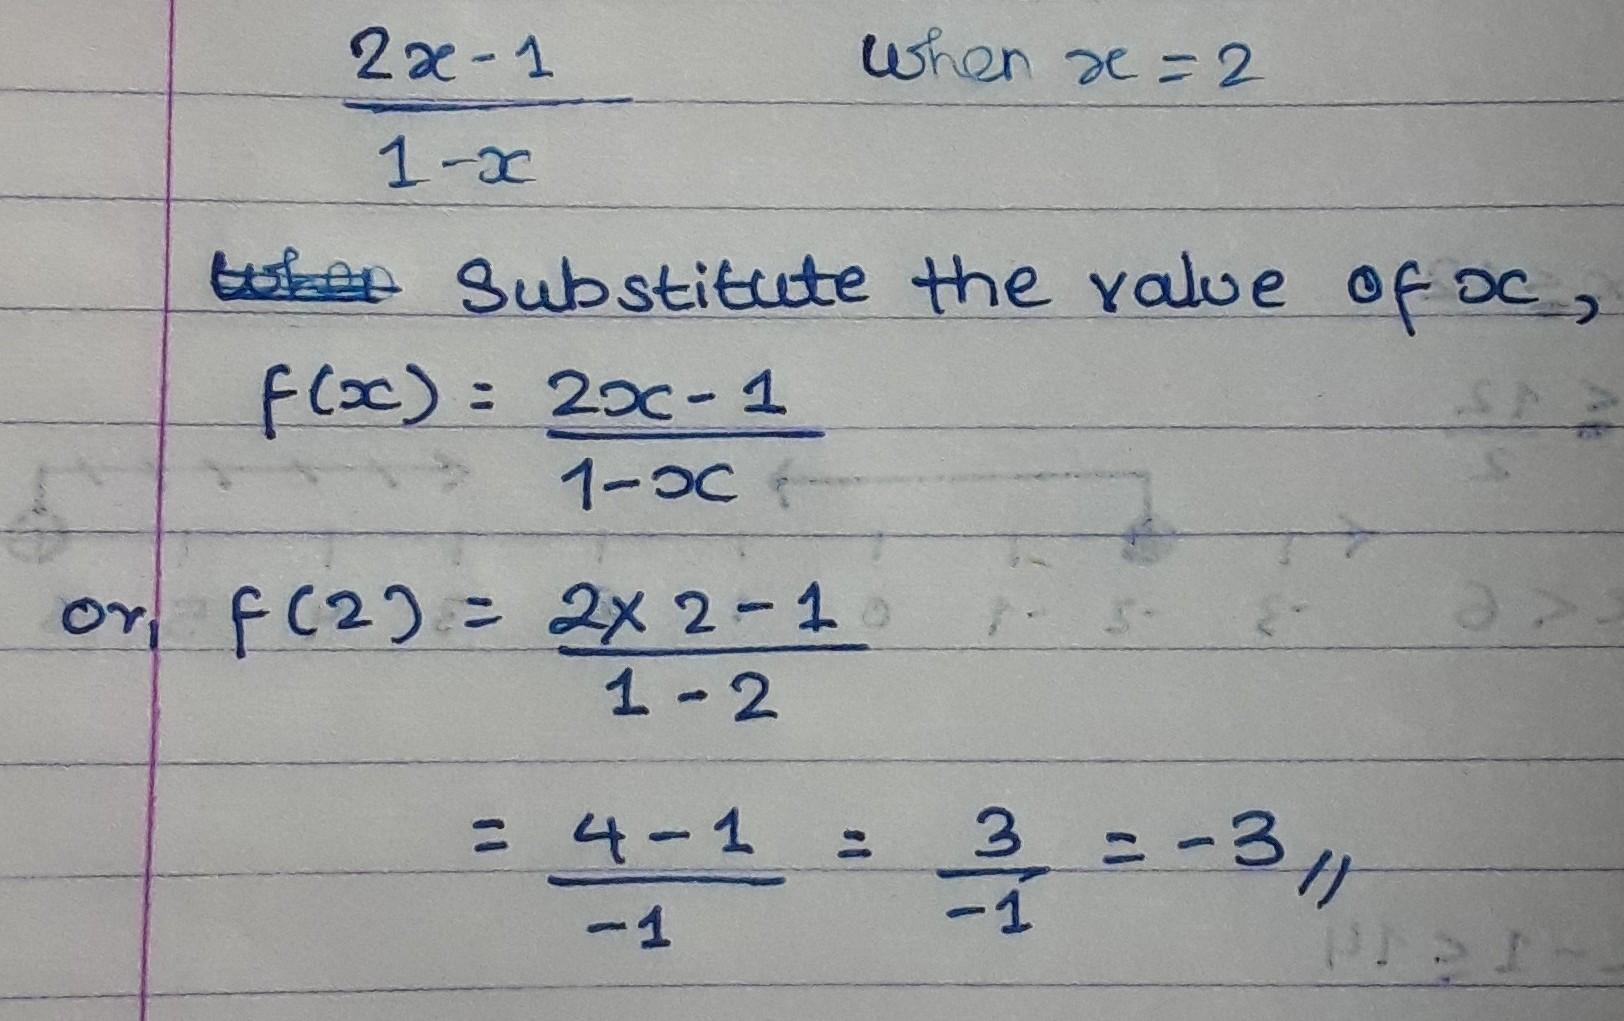 2x-1 when x=2
1-x
Substitute the value of x,
f(x) = 2x-1
1-x
or, f(2) = 2×2-1
1-2
= 4-1 = 3 = -3,,
-1 -1